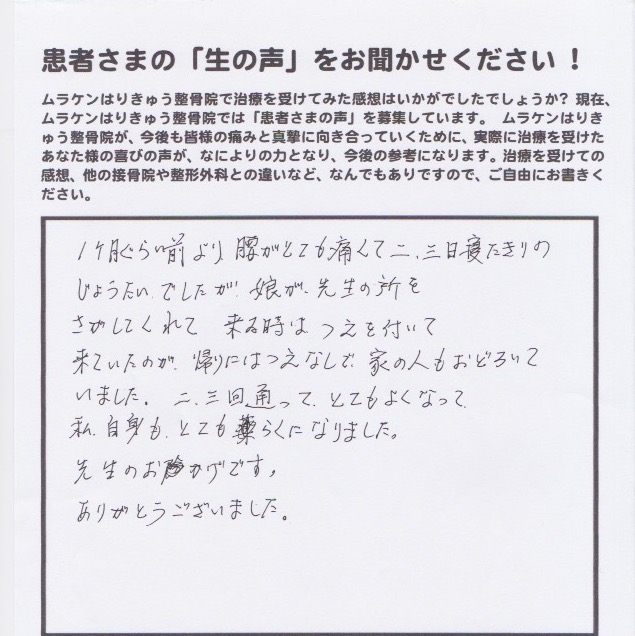 患者さまの「生の声」をお聞かせください！
ムラケンはりきゅう整骨院で治療を受けてみた感想はいかがでしたでしょうか？現在、
ムラケンはりきゅう整骨院では「患者さまの声」を募集しています。 ムラケンはりき
ゅう整骨院が、今後も皆様の痛みと真摯に向き合っていくために、実際に治療を受けた
あなた様の喜びの声が、なによりの力となり、今後の参考になります。治療を受けての
感想、他の接骨院や整形外科との違いなど、なんでもありですので、ご自由にお書きく
ださい。
1ヶ月ぐらい前より、腰がとても痛くて二、三日寝たきりの
じょうたいでしたが、娘が、先生の所を
さがしてくれて 来る時は つえを付いて
来ていたのが、帰りにはつえなしで、家の人もおどろいて
いました。二、三回通って、とてもよくなって、
私、自身も、とても楽らくになりました。
先生のおかげです。
ありがとうございました。